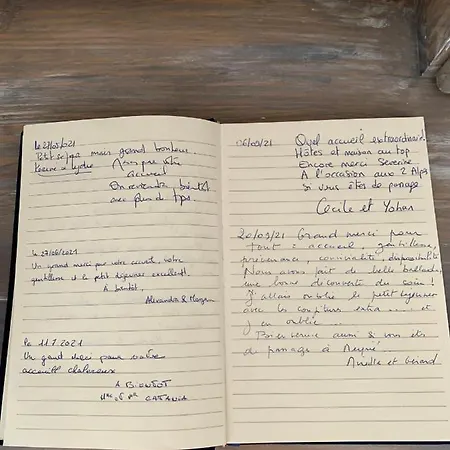 Le 27/05/2021
Petit séjour mais grand bonheur
Merci pour votre
accueil
On reviendra bientôt
avec plus de tps.
le 27/06/2021
Un grand merci pour votre accueil, votre
gentillesse et le petit déjeuner excellent!
A bientôt,
Alexandra &
Le 11.7.2021
Un grand merci pour votre
accueil chaleureux
A BIENTOT
CATANIA
06/09/21
Quel accueil extraordinaire.
Hôtes et maison au top.
Encore merci Severine
A l'occasion aux 2 Alpes
Si vous êtes de passage.
Cécile et Yohan
20/09/21 Grand merci pour
tout : accueil, gentillesse,
prévenance, convivialité, disponibilité
Nous avons fait de belles ballades,
une bonne découverte du coin !
J'allais oublier le petit déjeuner
avec les confitures extra .... et
j'en oublie.
Bienvenue aussi si vous êtes
de passage à
et Gérard